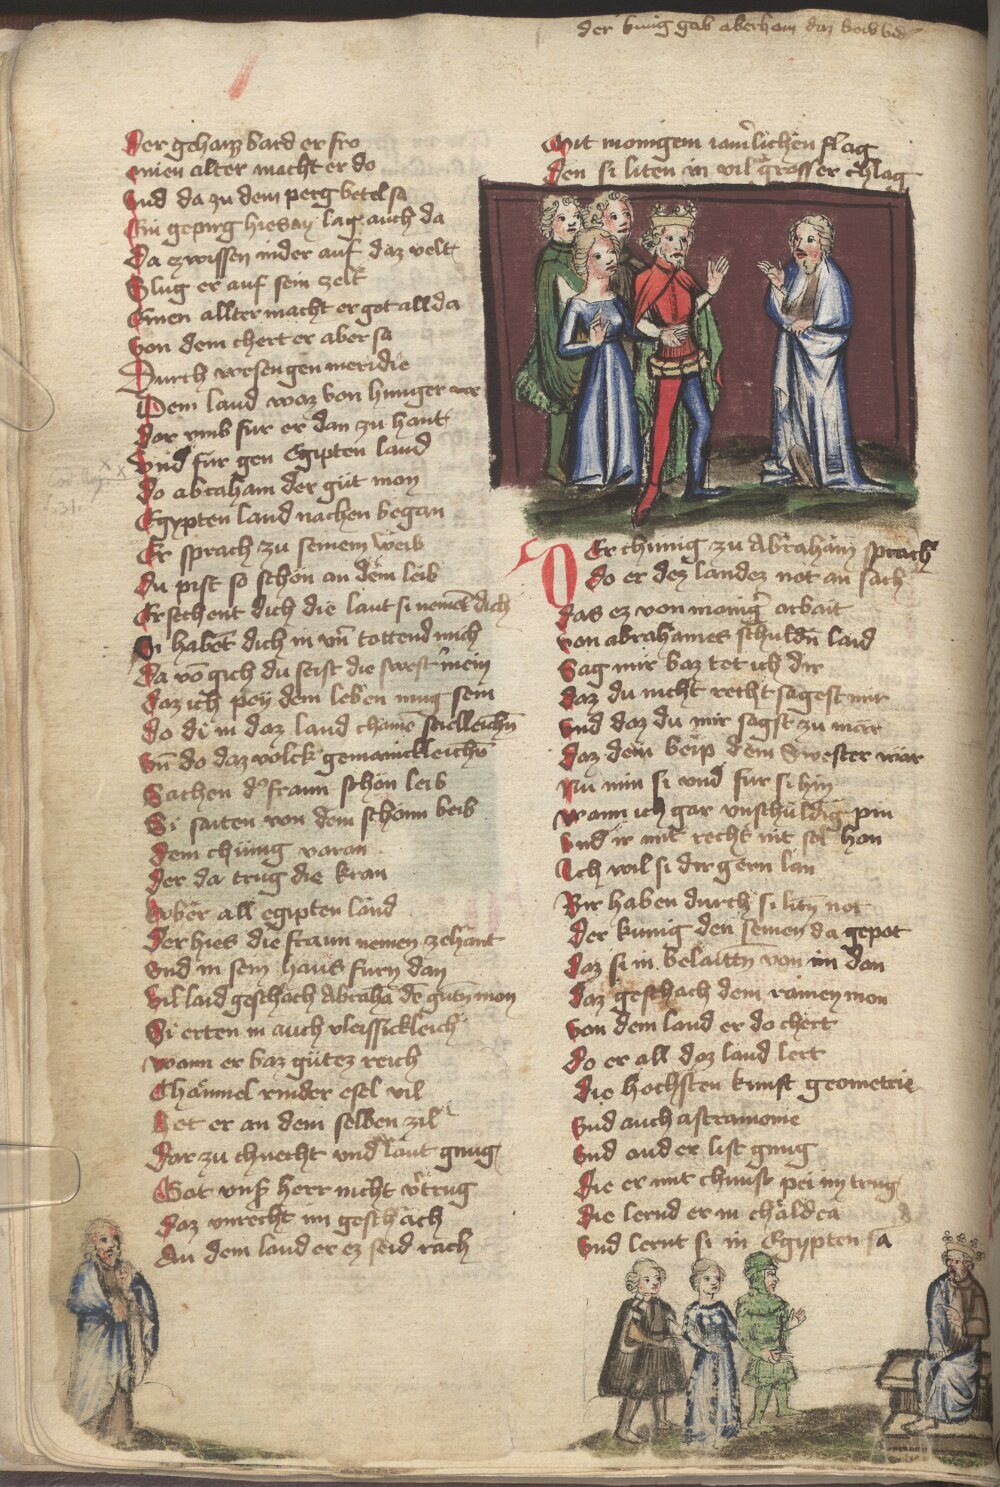 der kunig gab aberham daz weib
Der gehaiz ward er fro
einen alter macht er do
Vnd da zu dem perg betel sa
Ein gepirg hies ay lag auch da
Da ez wissen nider auf daz velt
Slug er auf sein zelt
Einen allter macht er got all da
Von dem chert er aber sa
Durch wesengen meridie
Dem land waz von hunger we
Dar vmb fur er dan zu hant
Vnd fur gen Egipten land
Do abraham der gut mon
Egypten land nachen began
Er sprach zu seinem weib
Du pist so schon an dem leib
Ersechent dich die laut si nement dich
Si habent dich in vn̄ tottend mich
Da võ gich du seist die swest' mein
Daz ich pey dem leben mug sein
Do di in daz land chame snelleichn̄
Vn̄ do daz volck gemainckleichn̄
Sachen d' fraun schon leib
Si saiten von dem schonn weib
Dem chunig varan
Der da trug die kran
Vber all egipten land
Der hies die fraun nemen zehant
Vnd in sein haus furn dan
Vil laid geschach Abrahā dē gutn̄ mon
Si erten in auch vleissickleich
Wann er waz gutez reich
Chammel rinder esel vil
Het er an dem selben zil
Dar zu chnecht vnd laut gnug
Got vnser herr nicht v'trug
Daz vnrecht im geschach
An dem land er ez seid rach
Mit monigem iam'lichen slag
Den si liten in vil grosser chlag
Der chunig zu Abraham sprach
do er dez landez not an sach
Das ez von monig' arbait
Von abrahames schuldn̄ laid
Sag mir waz tet ich dir
Daz du nicht recht sagest mir
Vnd daz du mir sagst zu mar
Daz dein weip dein Swester war
Nu nim si vnd fur si hin
Wann ich gar vnschuldig pin
Vnd ir mit recht nit sol han
Ich wil si dir gern lan
Wir haben durch si litn̄ not
Der kunig den seinen da gepot
Daz si in belaittn̄ von im dan
Daz geschach dem rainen mon
Von dem land er do chert
Do er all daz land lert
Die hochsten kunst geometrie
Vnd auch astramonie
Vnd ander list gnug
Die er mit chunst pei im trug
Die lernd er in chaldea
Vnd lernt si in Egypten sa